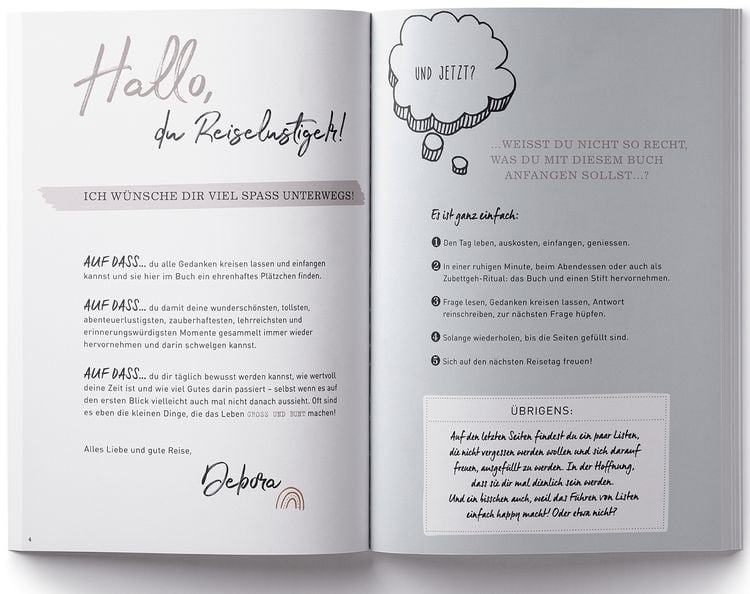 Hallo,
du Reiselustige/r!
ICH WÜNSCHE DIR VIEL SPASS UNTERWEGS!
AUF DASS... du alle Gedanken kreisen lassen und einfangen
kannst und sie hier im Buch ein ehrenhaftes Plätzchen finden.
AUF DASS... du damit deine wunderschönsten, tollsten,
abenteuerlustigsten, zauberhaftesten, lehrreichsten und
erinnerungswürdigsten Momente gesammelt immer wieder
hervornehmen und darin schwelgen kannst.
AUF DASS... du dir täglich bewusst werden kannst, wie wertvoll
deine Zeit ist und wie viel Gutes darin passiert – selbst wenn es auf
den ersten Blick vielleicht auch mal nicht danach aussieht. Oft sind
es eben die kleinen Dinge, die das Leben GROSS UND BUNT machen!
Alles Liebe und gute Reise,
Debora
4
UND JETZT?
...WEISST DU NICHT SO RECHT,
WAS DU MIT DIESEM BUCH
ANFANGEN SOLLST...?
Es ist ganz einfach:
1 Den Tag leben, auskosten, einfangen, geniessen.
2 In einer ruhigen Minute, beim Abendessen oder auch als
Zubettgeh-Ritual: das Buch und einen Stift hervornehmen.
3 Frage lesen, Gedanken kreisen lassen, Antwort
reinschreiben, zur nächsten Frage hüpfen.
4 Solange wiederholen, bis die Seiten gefüllt sind.
5 Sich auf den nächsten Reisetag freuen!
ÜBRIGENS:
Auf den letzten Seiten findest du ein paar Listen,
die nicht vergessen werden wollen und sich darauf
freuen, ausgefüllt zu werden. In der Hoffnung,
dass sie dir mal dienlich sein werden.
Und ein bisschen auch, weil das Führen von Listen
einfach happy macht! Oder etwa nicht?